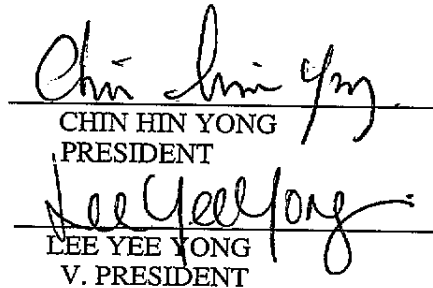 Chin Hin Yong
CHIN HIN YONG
PRESIDENT
Lee Yee Yong
LEE YEE YONG
V. PRESIDENT